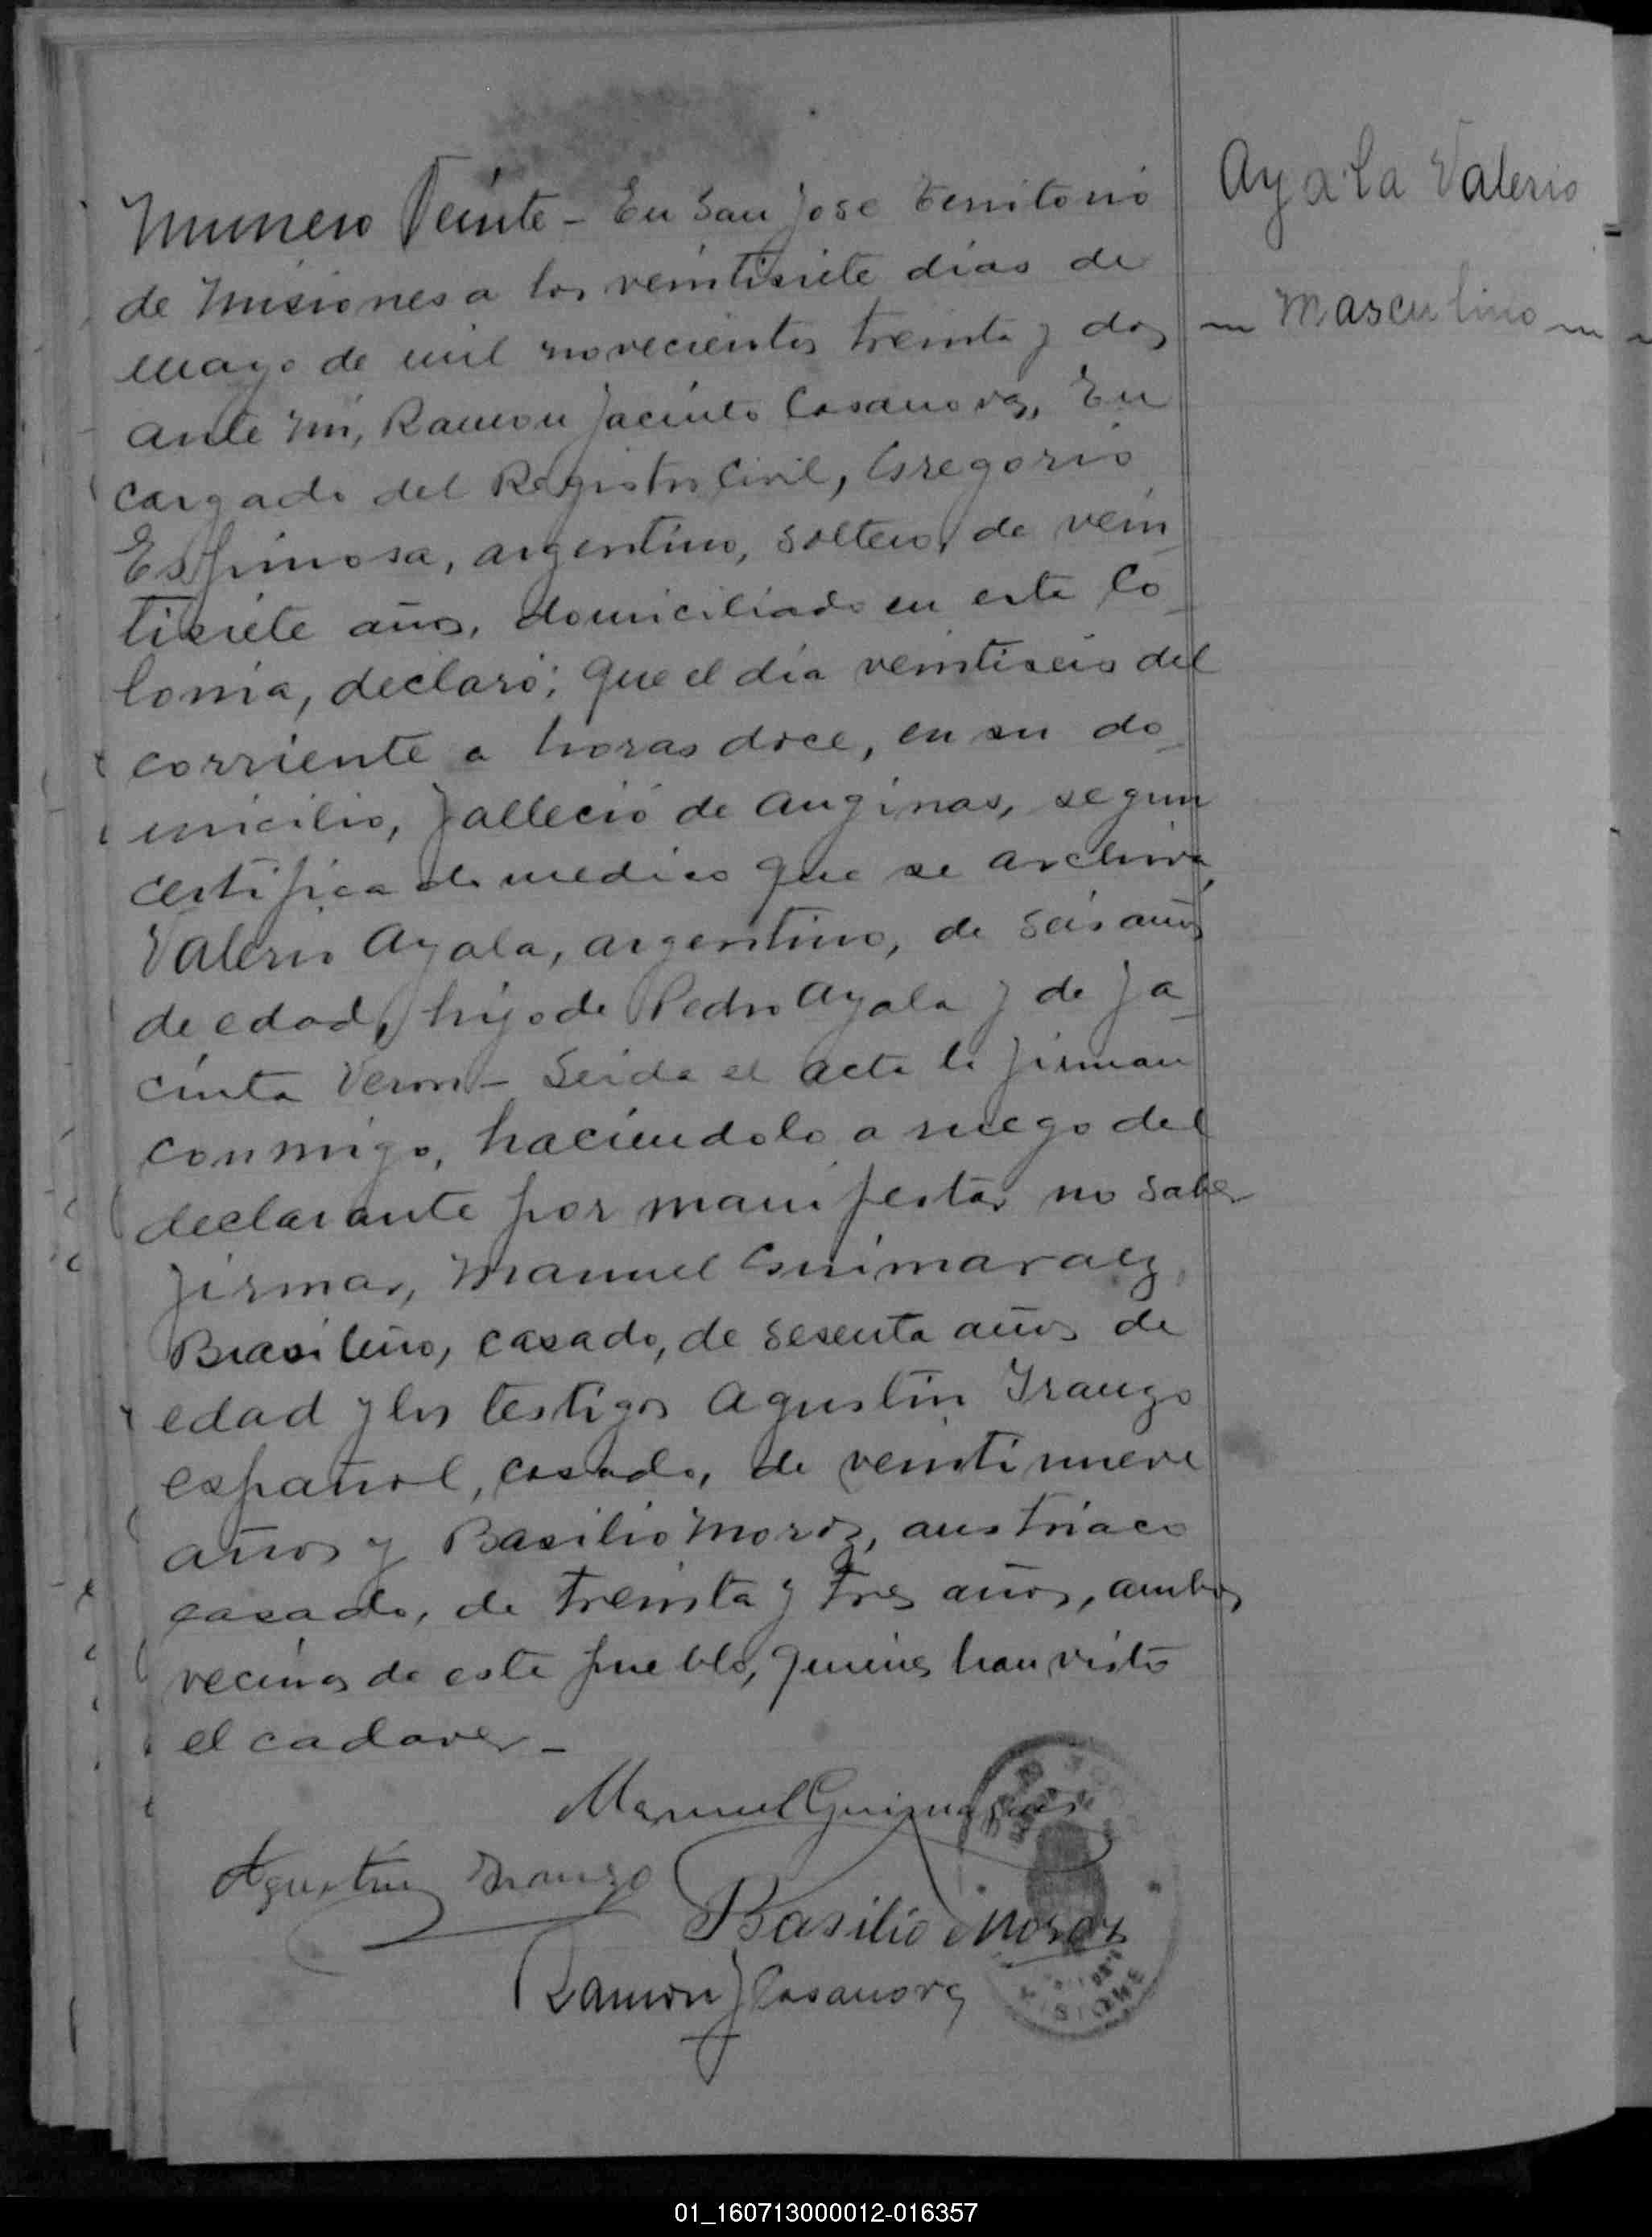 Numero Veinte - En San Jose Territorio
de Misiones a los veintisiete dias de
mayo de mil novecientos treinta y dos
ante mi, Ramon Jacinto Casanova, En
cargado del Registro Civil, Gregorio
Espinosa, argentino, soltero, de vein
tisiete años, domiciliado en esta Co
lonia, declaró; Que el dia veintiseis del
corriente a horas doce, en su do
micilio, falleció de anginas, segun
certificado medico que se archiva,
Valerio Ayala, argentino, de seis años
de edad, hijo de Pedro Ayala y de Ja
cinta Veron - Leida el acta la firman
conmigo, haciendolo a ruego del
declarante por manifestar no saber
firmar, Manuel Guimaraez,
Brasileño, casado, de sesenta años de
edad y los testigos Agustin Iranzo
español, casado, de veintinueve
años y Basilio Moroz, austriaco
casado, de treinta y tres años, ambos
vecinos de este pueblo, quienes han visto
el cadaver -
Ayala Valerio
Masculino
Manuel Guimaraes
Agustin Iranzo
Basilio Moroz
Ramon J Casanova
01_160713000012-016357